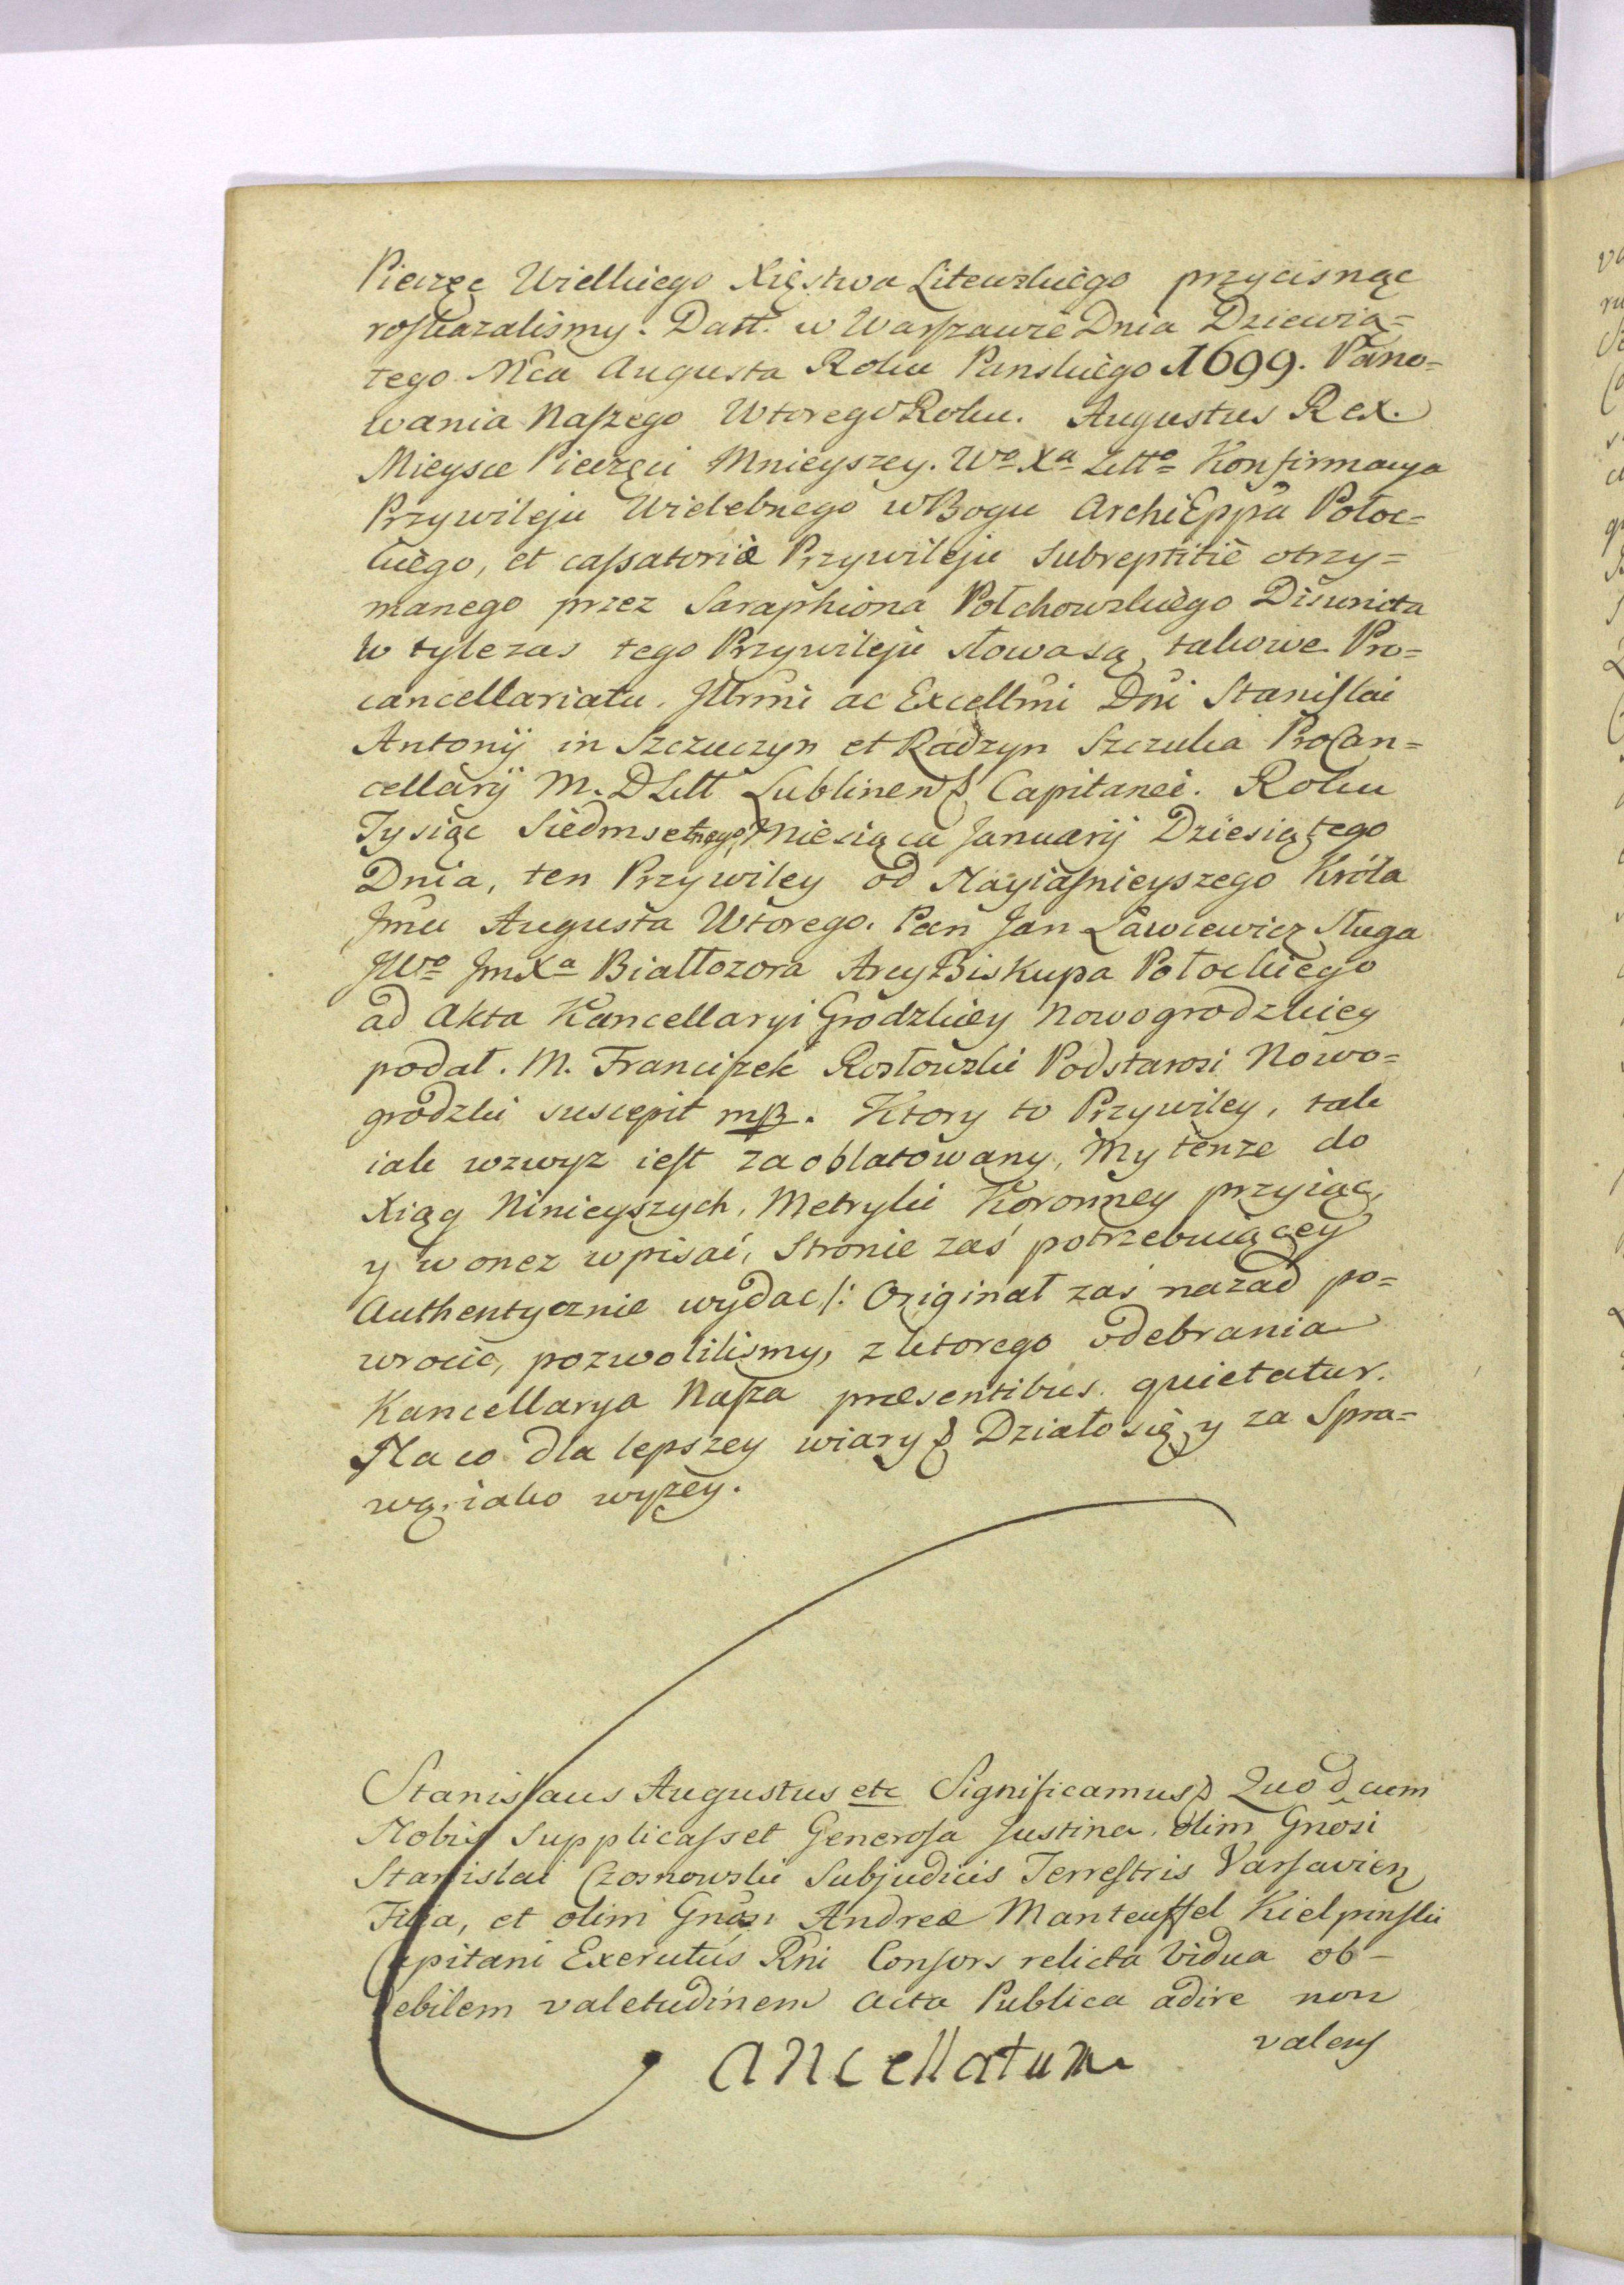 Pieczęć Wielkiego Xięstwa Litewskiego przycisnąc
roskazalismy. Datt. w Warszawie Dnia Dziewią=
tego Mca Augusta Roku Panskiego 1699. Pano=
wania Naszego Wtorego Roku. Augustus Rex.
Mieysce Pieczęci Mnieyszey. Wo Xa Litto Konfirmacya
Przywileju Wielebnego w Bogu ArchiEppa Połoc=
kiego, et cassatoria Przywileju Subreptitiè otrzy=
manego przez Saraphiona Połchowskiego Disunita
w tylczas tego Przywileju słowa są takowe. Pro=
cancellariatu. Jllrmi ac Excellmi Dni Stanislai
Antonij in Szczuczyn et Radzyn Szczuka ProCan=
cellarij M. D Litt Lublinens Capitanei. Roku
Tysiąc Siedmsetnego, Miesiąca Januarij Dziesiątego
Dnia, ten Przywiley od Nayiasnieyszego Króla
Jmci Augusta Wtorego. Pan Jan Ławcewicz Sługa
JWo JmXa Białłozora ArcyBiskupa Połockiego
ad Akta Kancellaryi Grodzkiey Nowogrodzkiey
podał. M. Franciszek Rostowski Podstarosi Nowo=
grodzki suscepit mp. Ktory to Przywiley, tak
iak wzwyz iest zaoblatowany, My tenze do
Xiąg Ninieyszych, Metryki Koronney przyiąc,
y w onez wpisać, Stronie zaś potrzebuiącey
Authentycznie wydac /: Originał zas nazad po=
wrocic, pozwolilismy, z ktorego odebrania
Kancellarya Nasza præsentibus quietatur.
Na co dla lepszey wiary Działo się y za Spra=
wą, iako wyzey.
Stanislaus Augustus etc Significamus Quod cum
Nobis Supplicasset Generosa Justina olim Gnosi
Stanislai Czosnowski Subjudicis Terrestris Varsavien
Filia, et olim Gnosi Andreæ Manteuffel Kielpinski
Capitani Exercitus Rni Consors relicta Vidua ob
debilem valetudinem acta Publica adire non
valens
Cancellatum